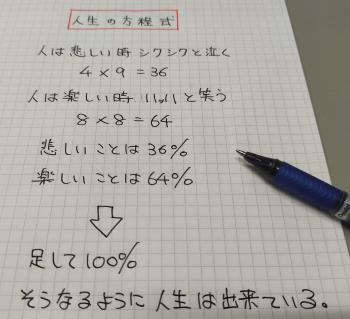 人生の方程式
人は悲しい時シクシクと泣く
4×9=36
人は楽しい時ハハハと笑う
8×8=64
悲しいことは36%
楽しいことは64%
足して100%
そうなるように人生は出来ている。